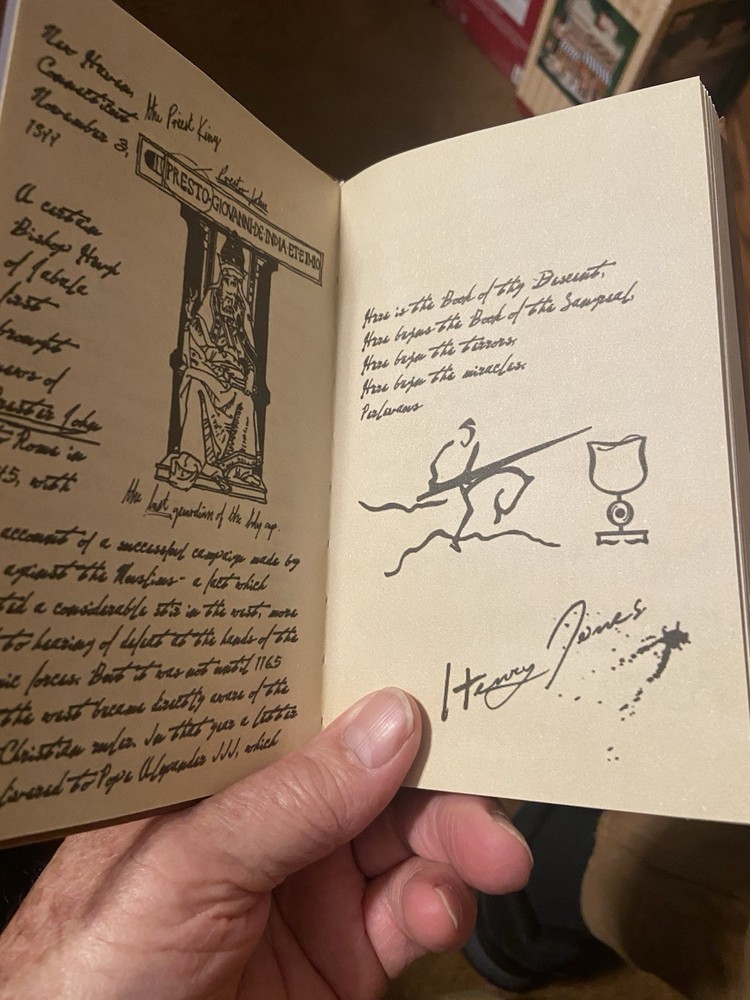 New Haven
Connecticut
November 3,
1977
the Priest King
Prester John
PRESTO·GIOVANNI·DE·INDIA·ET·ETI
A certain
Bishop
of Jabala
first
brought
news of
Prester John
to Rome in
45, with
the last guardian of the holy cup.
account of a successful campaign made by
against the Muslims - a fact which
ted a considerable stir in the west, more
to hearing of defeat at the hands of the
ic forces. But it was not until 1165
the west became directly aware of the
Christian ruler. In that year a letter
livered to Pope Alexander III, which
Here is the Book of thy Descent,
Here begins the Book of the Sangreal,
Here begin the terrors.
Here begin the miracles.
Perlesvaus
Henry Jones